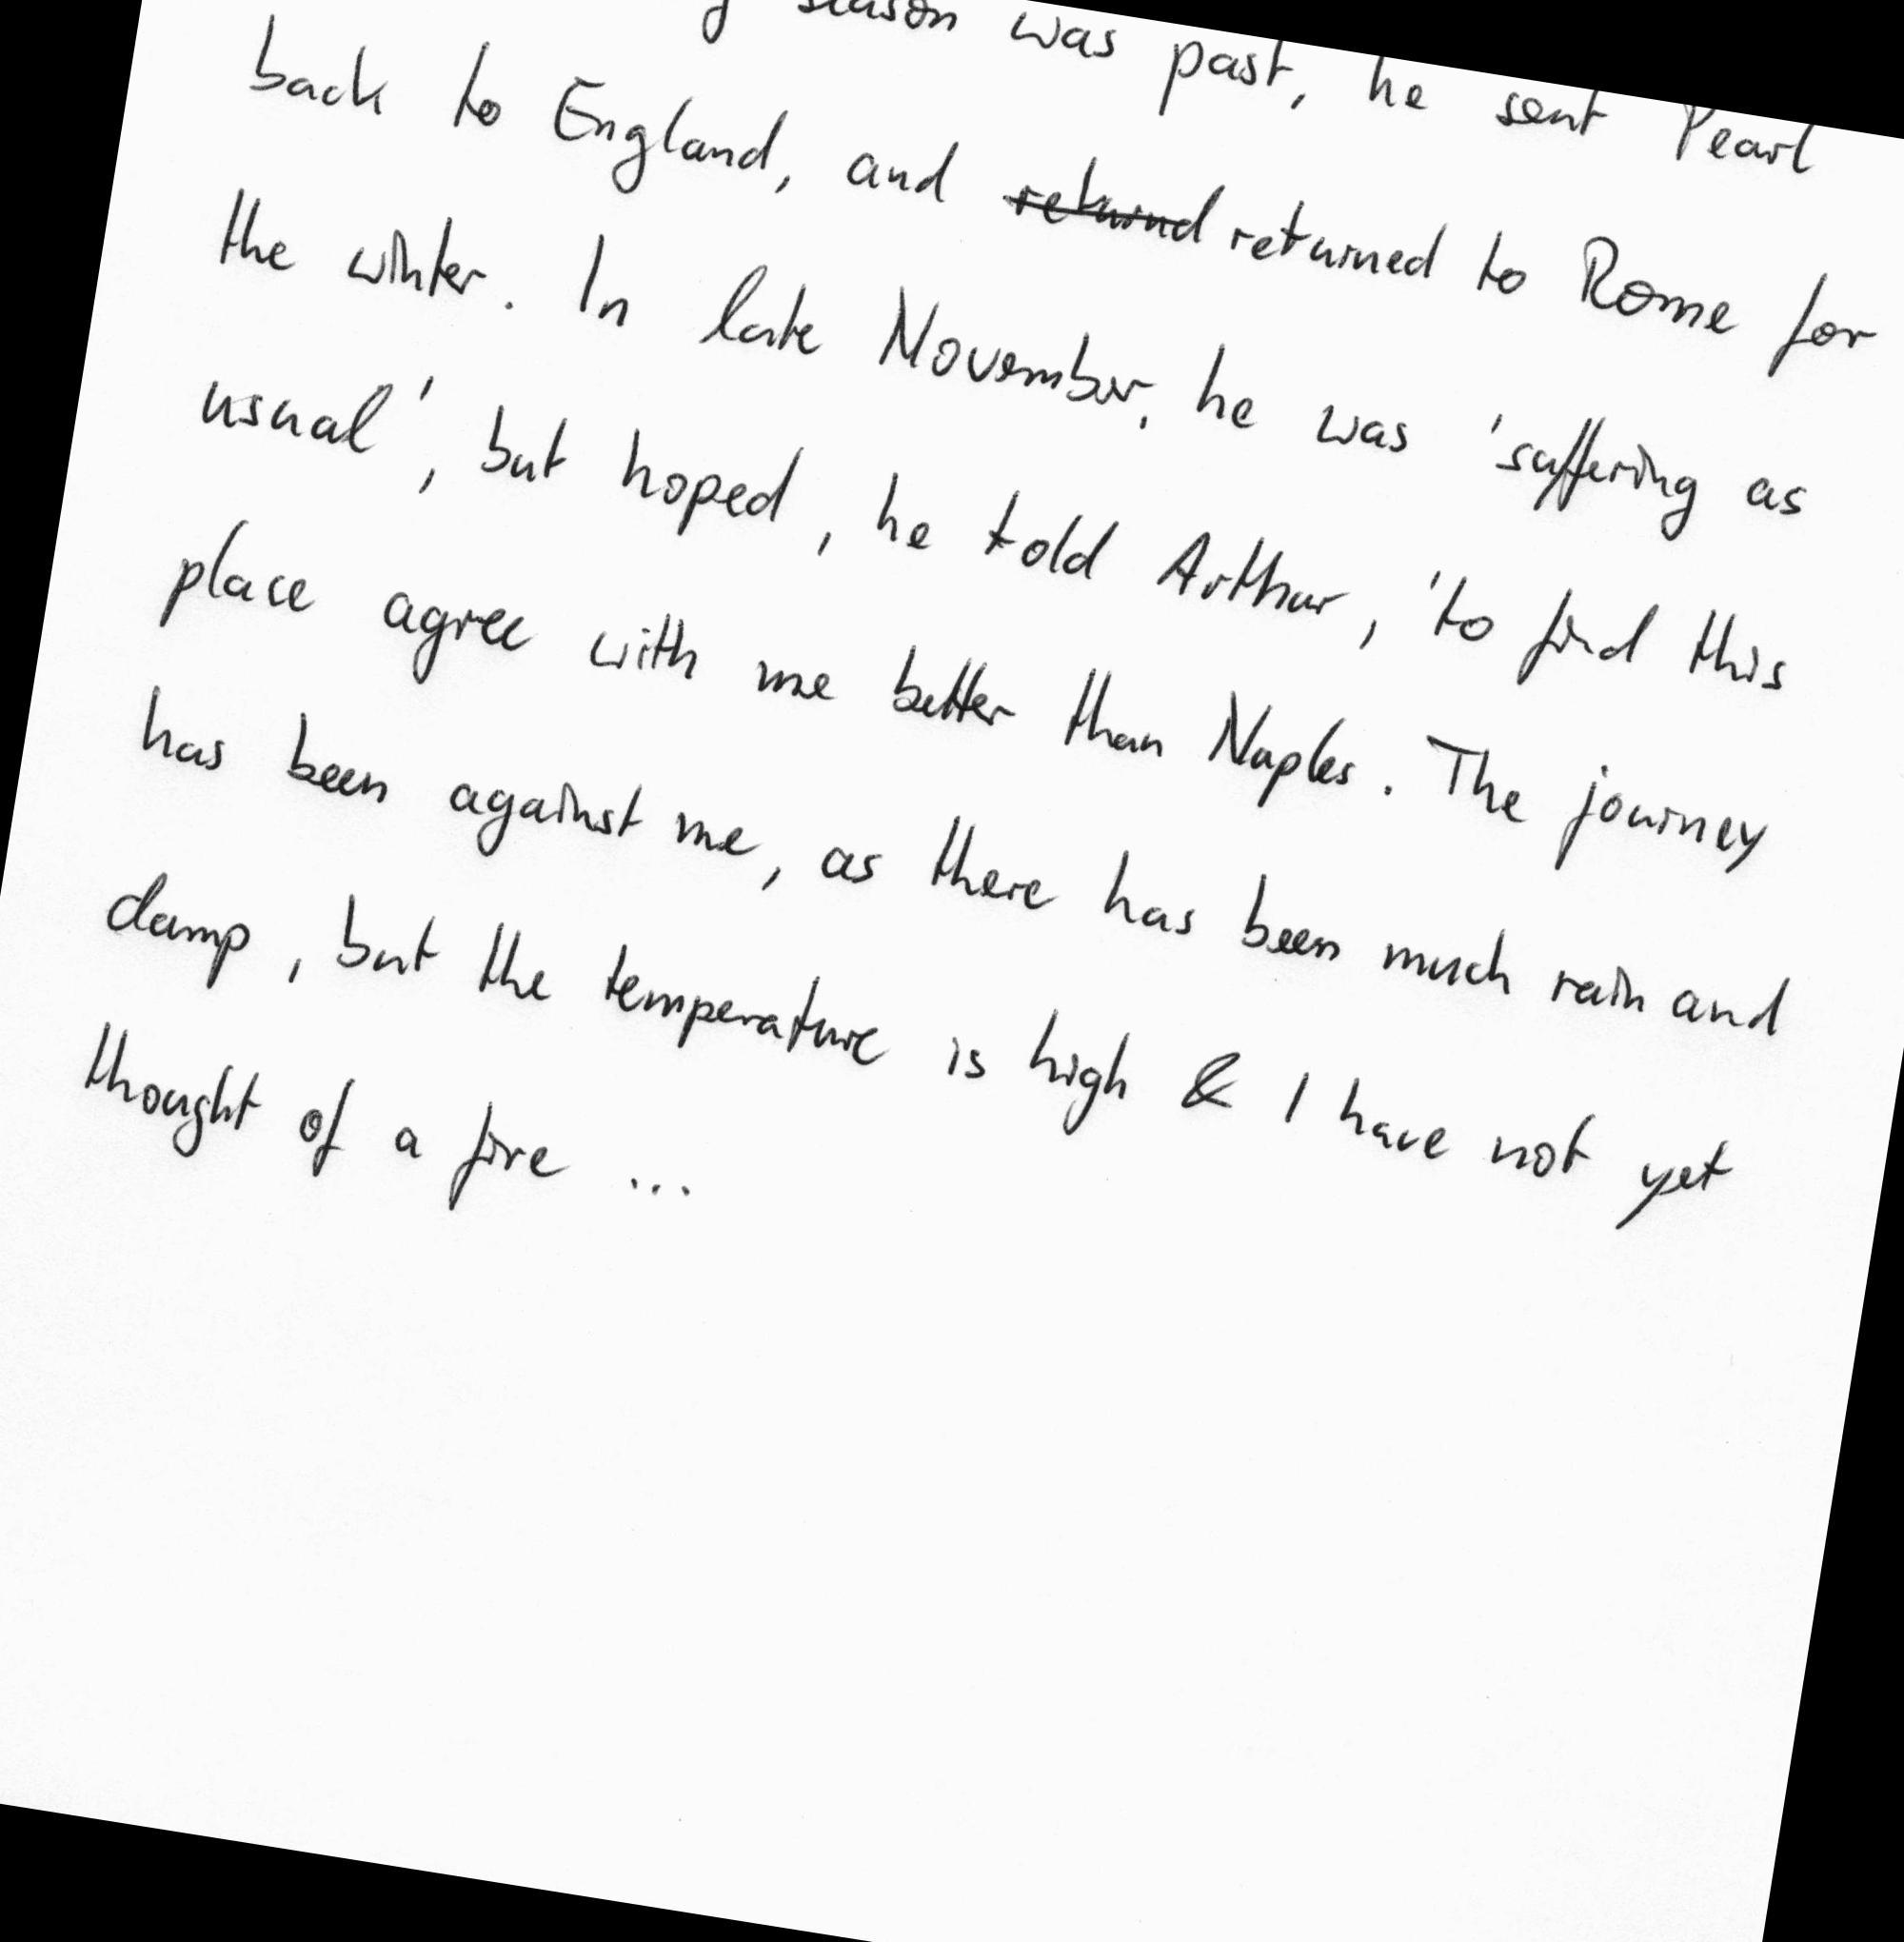 season was past, he sent Pearl
back to England, and returnd returned to Rome for
the winter. In late November, he was 'suffering as
usual', but hoped, he told Arthur, 'to find this
place agree with me better than Naples. The journey
has been against me, as there has been much rain and
damp, but the temperature is high & I have not yet
thought of a fire ...